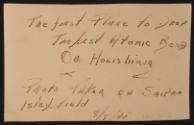 The first Plane to drop
The first Atomic Bomb
On Hoieshima
Photo Taken on Saipan
Isley field